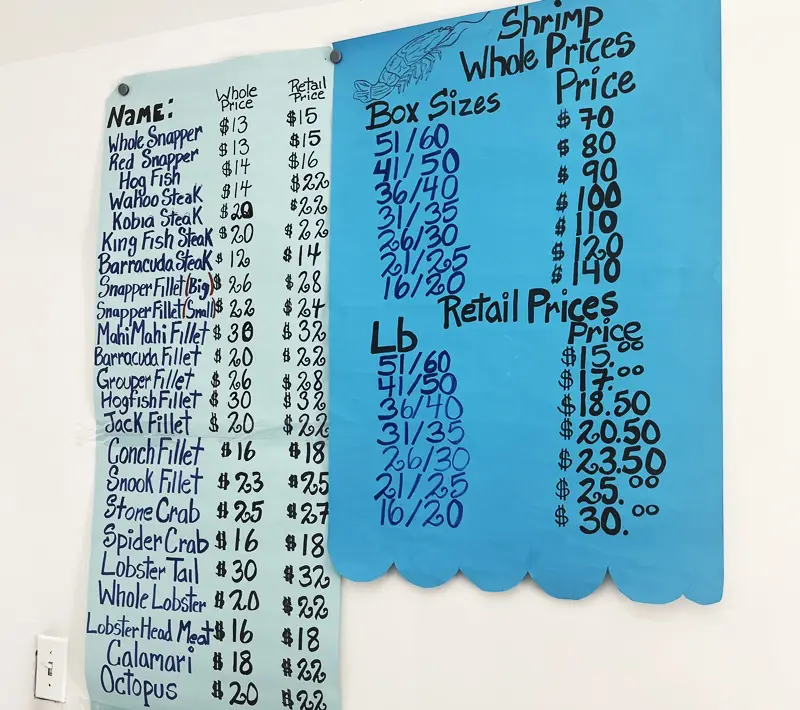 NAME: Whole Price Retail Price
Whole Snapper $13 $15
Red Snapper $13 $15
Hog Fish $14 $16
Wahoo Steak $14 $22
Kobia Steak $20 $22
King Fish Steak $20 $22
Barracuda Steak $12 $14
Snapper Fillet (Big) $26 $28
Snapper Fillet (Small) $22 $24
Mahi Mahi Fillet $30 $32
Barracuda Fillet $20 $22
Grouper Fillet $26 $28
Hogfish Fillet $30 $32
Jack Fillet $20 $22
Conch Fillet $16 $18
Snook Fillet $23 $25
Stone Crab $25 $27
Spider Crab $16 $18
Lobster Tail $30 $32
Whole Lobster $20 $22
Lobster Head Meat $16 $18
Calamari $18 $22
Octopus $20 $22
Shrimp
Whole Prices
Box Sizes Price
51/60 $70
41/50 $80
36/40 $90
31/35 $100
26/30 $110
21/25 $120
16/20 $140
Retail Prices
Lb Price
51/60 $15.00
41/50 $17.00
36/40 $18.50
31/35 $20.50
26/30 $23.50
21/25 $25.00
16/20 $30.00